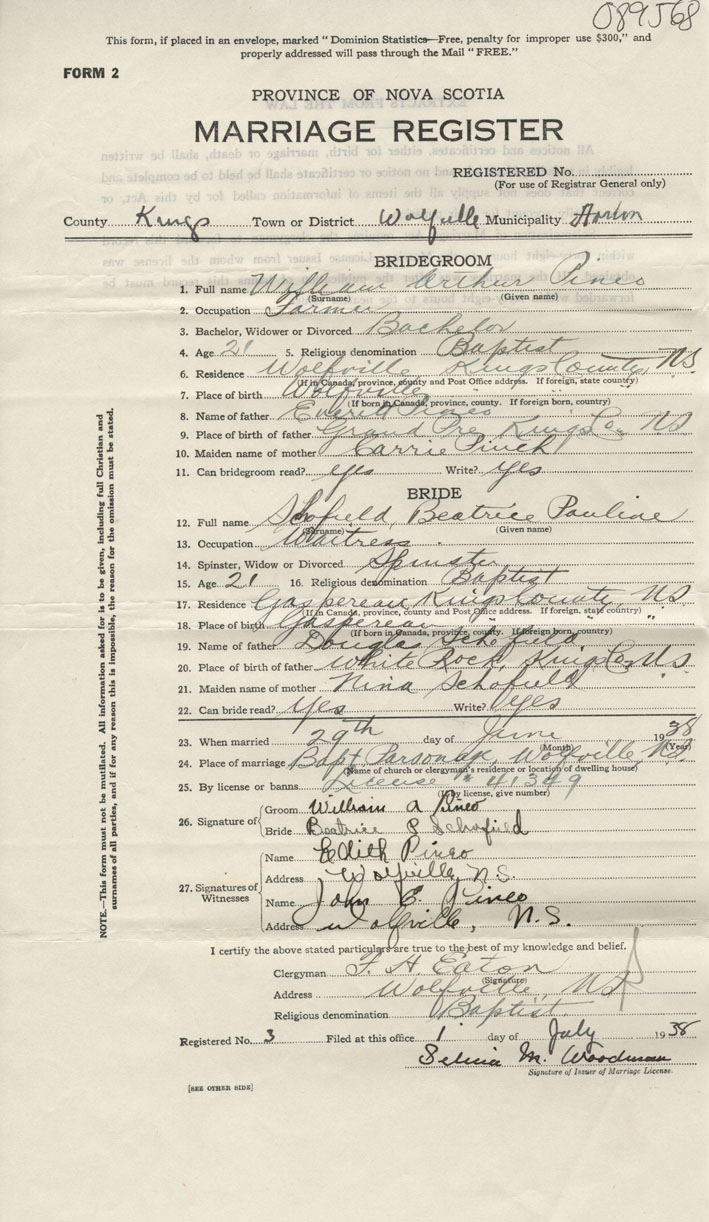 089568
This form, if placed in an envelope, marked "Dominion Statistics—Free, penalty for improper use $300," and
properly addressed will pass through the Mail "FREE."
FORM 2
PROVINCE OF NOVA SCOTIA
MARRIAGE REGISTER
REGISTERED No.
(For use of Registrar General only)
County Kings Town or District Wolfville Municipality Horton
BRIDEGROOM
1. Full name William Arthur Pineo
(Surname) (Given name)
2. Occupation Farmer
3. Bachelor, Widower or Divorced Bachelor
4. Age 21 5. Religious denomination Baptist
6. Residence Wolfville Kings County, NS
(If in Canada, province, county and Post Office address. If foreign, state country)
7. Place of birth Wolfville
(If born in Canada, province, county. If foreign born, country)
8. Name of father Everett Pineo
9. Place of father Grand Pre Kings Co. NS
10. Maiden name of mother Carrie Finch
11. Can bridegroom read? yes Write? yes
BRIDE
12. Full name Schofield, Beatrice Pauline
(Surname) (Given name)
13. Occupation Waitress
14. Spinster, Widow or Divorced Spinster
15. Age 21 16. Religious denomination Baptist
17. Residence Gaspereau, Kings County, NS
(If in Canada, province, county and Post Office address. If foreign, state country)
18. Place of birth Gaspereau " "
(If born in Canada, province, county. If foreign born, country)
19. Name of father Douglas Schofield
20. Place of birth of father White Rock, Kings Co, NS
21. Maiden name of mother Nina Schofield
22. Can bride read? yes Write? yes
23. When married 29th day of June 1938
(Month) (Year)
24. Place of marriage Bapt Parsonage, Wolfville, NS
(Name of church or clergyman's residence or location of dwelling house)
25. By license or banns License # 41349
(If by license, give number)
26. Signature of
Groom William A Pineo
Bride Beatrice P Schofield
27. Signatures of Witnesses
Name Edith Pineo
Address Wolfville, N.S.
Name John E. Pineo
Address Wolfville, N.S.
I certify the above stated particulars are true to the best of my knowledge and belief.
Clergyman F. H. Eaton
(Signature)
Address Wolfville, NS
Religious denomination Baptist
Registered No. 3 Filed at this office 1 day of July 1938
Selina M. Woodman
Signature of Issuer of Marriage License.
[SEE OTHER SIDE]
NOTE.—This form must not be mutilated. All information asked for is to be given, including full Christian and
surnames of all parties, and if for any reason this is impossible, the reason for the omission must be stated.